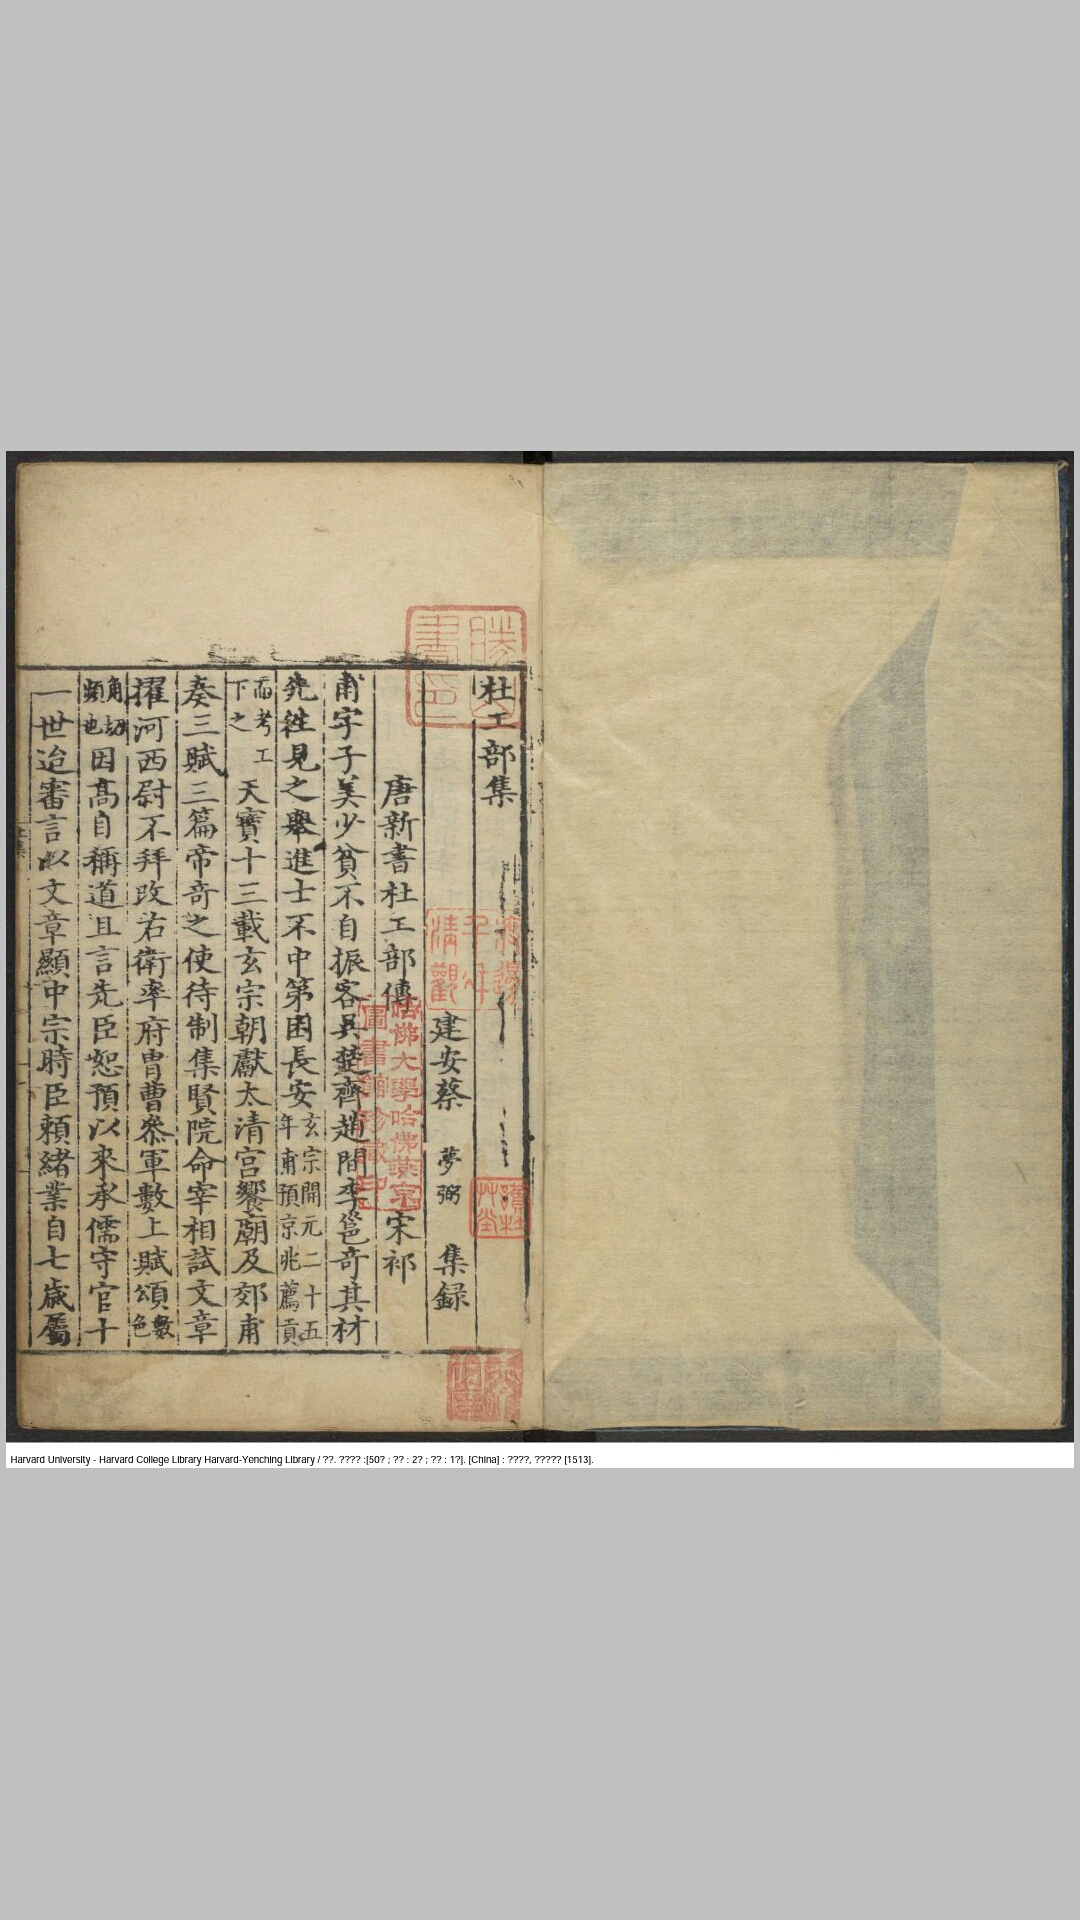 杜工部集
建安蔡 夢弼 集録
唐新書杜工部傳 宋祁
甫字子美少貧不自振客吳楚齊趙間李邕奇其材
先徃見之舉進士不中第困長安玄宗開元二十五年甫預京兆薦貢
而考工下之天寶十三載玄宗朝獻太清宫饗廟及郊甫
奏三賦三篇帝奇之使待制集賢院命宰相試文章
擢河西尉不拜改右衛率府胄曹叅軍數上賦頌數色
角切頻也因高自稱道且言先臣恕預以來承儒守官十
一世迨審言以文章顯中宗時臣頼緒業自七歳屬
哈佛大學哈佛燕京
圖書館珍藏印
Harvard University - Harvard College Library Harvard-Yenching Library / ??. ???? :[50? ; ?? : 2? ; ?? : 1?]. [China] : ????, ????? [1513].